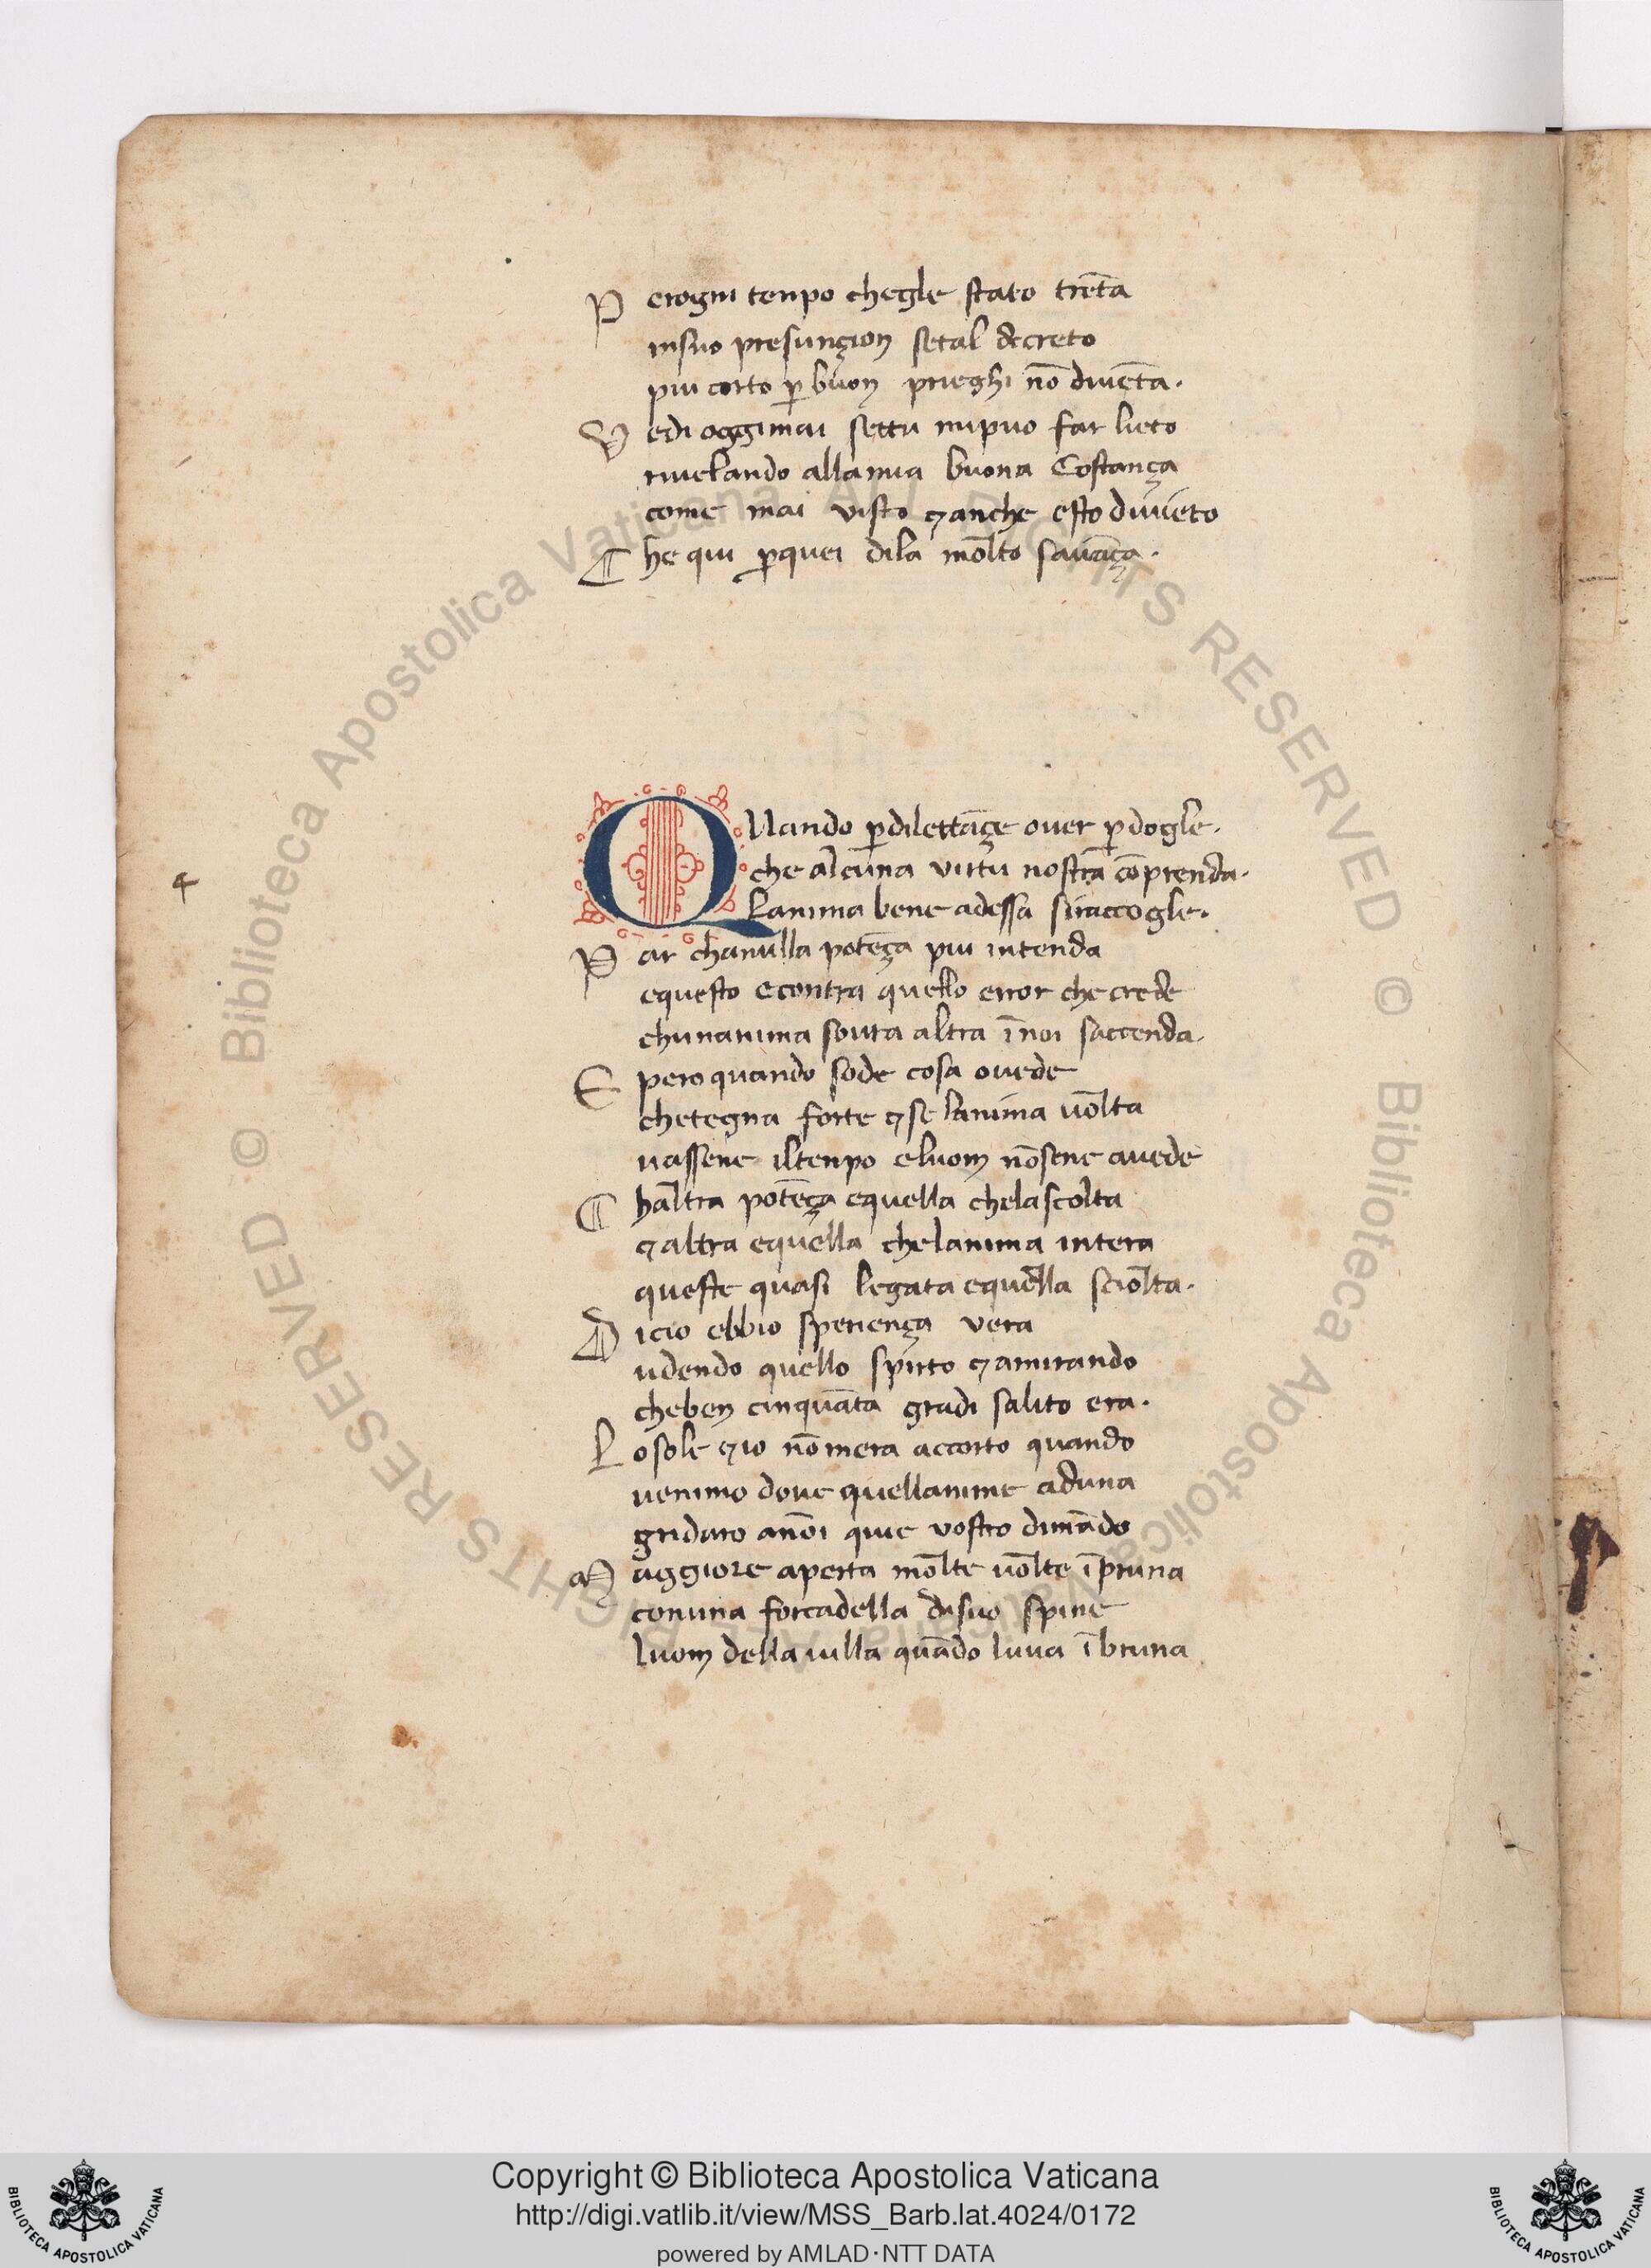 P erogni tenpo chegle stato trēta
insuo presunçion setal decreto
piu corto ꝑ buon prieghi nō diuēta.
V edi oggimai settu mipuo far lieto
riuelando allamia buona Costança
come mai visto ⁊ anche esto diuieto
C he qui ꝑquei dila molto sauāça.
QUando ꝑdilettāçe ouer ꝑdogle.
che alcuna virtu nostra cōprenda.
Lanima bene adessa siraccogle.
P ar chanulla potēça piu intenda
equesto econtra quello error che crede
chunanima soura altra īnoi saccenda.
E pero quando sode cosa ouede
chetegna forte ⁊ se lanima uolta
uassene iltenpo eluom nōsene auede
C haltra potēça equella chelascolta
⁊ altra equella chelanima intera
queste quasi legata equella sciolta.
D icio ebbio speriença vera
udendo quello spirto ⁊ amirando
cheben cinquāta gradi salito era.
L osole ⁊ io nō mera accorto quando
uenimo doue quellanime aduna
gridaro anoi quie vostro dimādo
M aggiore aperta molte uolte īpruna
conuna forcadella disuo spine
luom della uilla quādo luua ībruna
4
© Biblioteca Apostolica Vaticana ALL RIGHTS RESERVED
© Biblioteca Apostolica Vaticana ALL RIGHTS RESERVED
Copyright © Biblioteca Apostolica Vaticana
http://digi.vatlib.it/view/MSS_Barb.lat.4024/0172
powered by AMLAD·NTT DATA
BIBLIOTECA APOSTOLICA VATICANA
BIBLIOTECA APOSTOLICA VATICANA